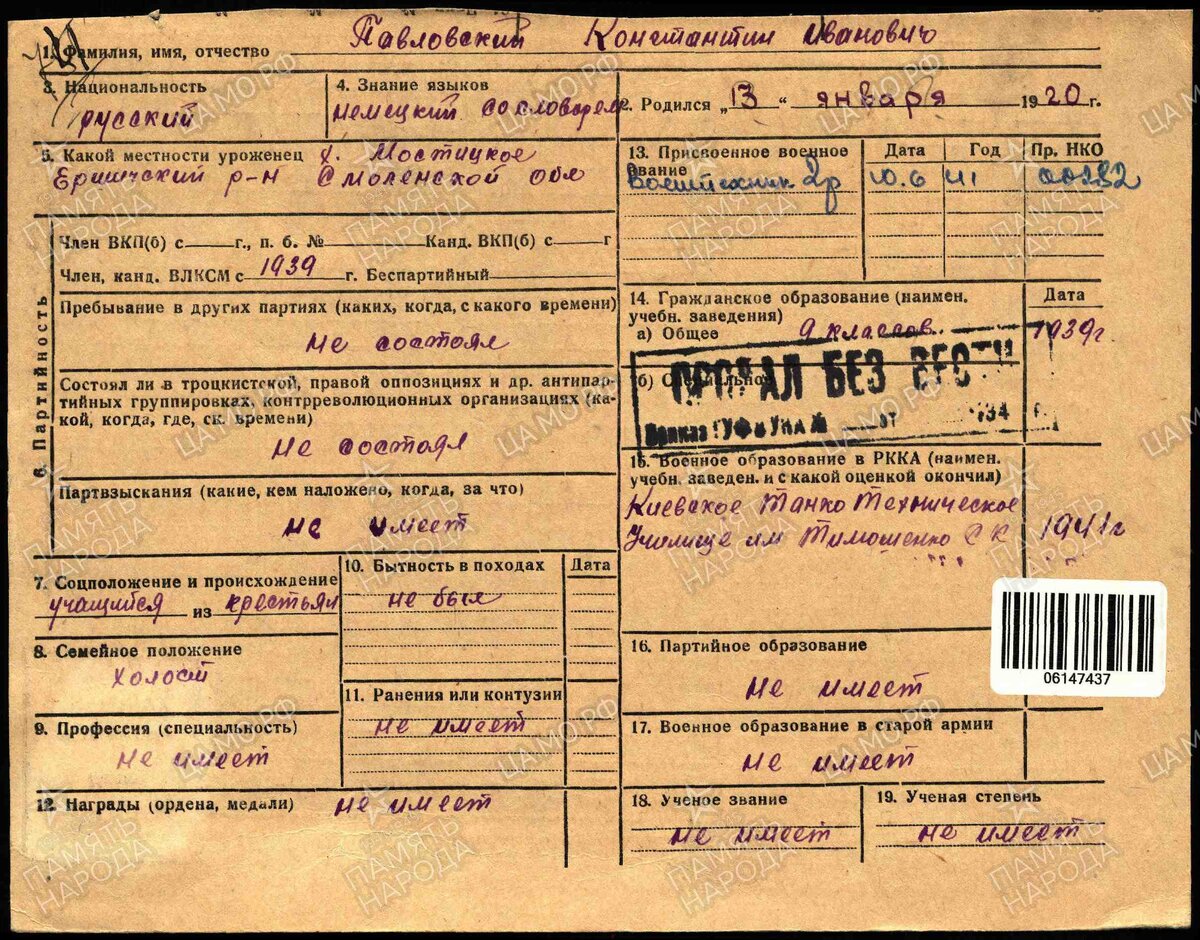 Павловский Константин Иванович
1. Фамилия, имя, отчество
3. Национальность
русский
4. Знание языков
немецкий со словарем
2. Родился „ 13 “ января 1920 г.
5. Какой местности уроженец х. Мостицкое
Ершичский р-н Смоленской обл
13. Присвоенное военное звание
Дата Год Пр. НКО
Воентехник 2р 10.6 41 00282
6. Партийность
Член ВКП(б) с г., п. б. № Канд. ВКП(б) с г
Член, канд. ВЛКСМ с 1939 г. Беспартийный
Пребывание в других партиях (каких, когда, с какого времени)
Не состоял
Состоял ли в троцкистской, правой оппозиции и др. антипар-
тийных группировках, контрреволюционных организациях (ка-
кой, когда, где, ск. времени)
Не состоял
Партвзыскания (какие, кем наложено, когда, за что)
не имеет
14. Гражданское образование (наимен.
учебн. заведения)
Дата
а) Общее 9 классов 1939г
б) Специальное
ПРОПАЛ БЕЗ ВЕСТИ
Приказ ГУФ и УКА № от 194 г.
15. Военное образование в РККА (наимен.
учебн. заведен. и с какой оценкой окончил)
Киевское Танко Техническое
Училище им Тимошенко С К 1941г
7. Соцположение и происхождение
учащийся из крестьян
8. Семейное положение
холост
9. Профессия (специальность)
не имеет
10. Бытность в походах Дата
не был
11. Ранения или контузии
не имеет
12. Награды (ордена, медали) не имеет
06147437
16. Партийное образование
Не имеет
17. Военное образование в старой армии
Не имеет
18. Ученое звание
не имеет
19. Ученая степень
не имеет
ПАМЯТЬ НАРОДА
ЦАМО.РФ